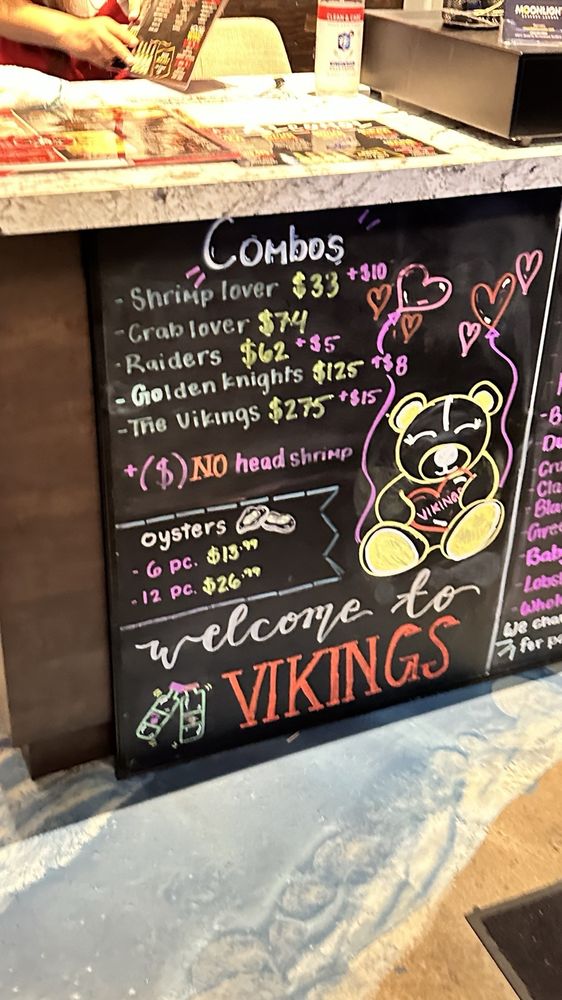 MOONLIGH
CLEAN & CARE
Combos
- Shrimp lover $33 +$10
- Crab lover $74
- Raiders $62 +$5
- Golden knights $125 +$8
- The Vikings $275 +$15
+($) NO head shrimp
oysters
- 6 pc. $13.99
- 12 pc. $26.99
VIKINGS
welcome to
VIKINGS
We char
for pe